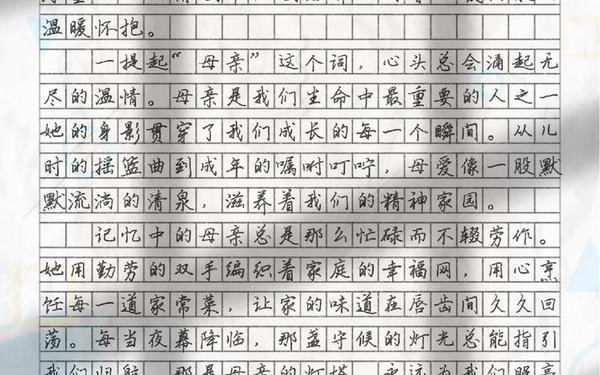 温暖怀抱。
一提起“母亲”这个词，心头总会涌起无
尽的温情。母亲是我们生命中最重要的人之一
她的身影贯穿了我们成长的每一个瞬间。从儿
时的摇篮曲到成年的嘱咐叮咛，母爱像一股默
默流淌的清泉，滋养着我们的精神家园。
记忆中的母亲总是那么忙碌而不辍劳作。
她用勤劳的双手编织着家庭的幸福网，用心烹
饪每一道家常菜，让家的味道在唇齿间久久回
荡。每当夜幕降临，那盏守候的灯光总能指引
我们归航，那是母亲的灯塔，永远为我们照亮